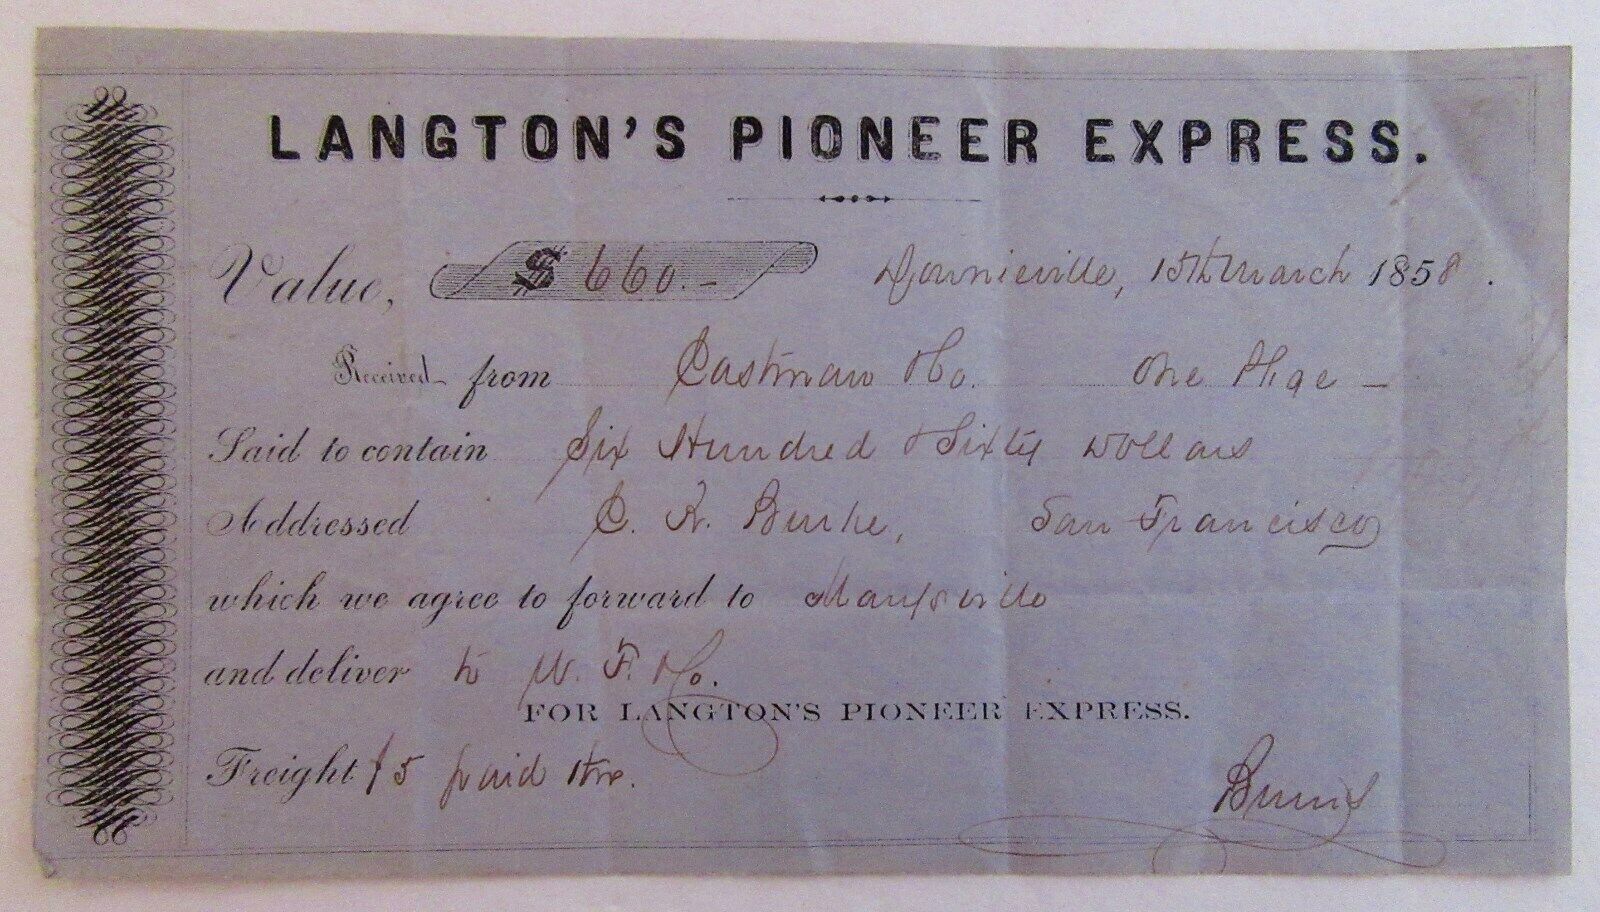 LANGTON'S PIONEER EXPRESS.
Value, $ 660.- Downieville, 15th March 1858.
Received from Eastman & Co. One Pkge —
Said to contain Six Hundred & Sixty Dollars
Addressed C. R. Burke, San Francisco
which we agree to forward to Marysville
and deliver to W. F. & Co.
FOR LANGTON'S PIONEER EXPRESS.
Freight $5 paid thro.